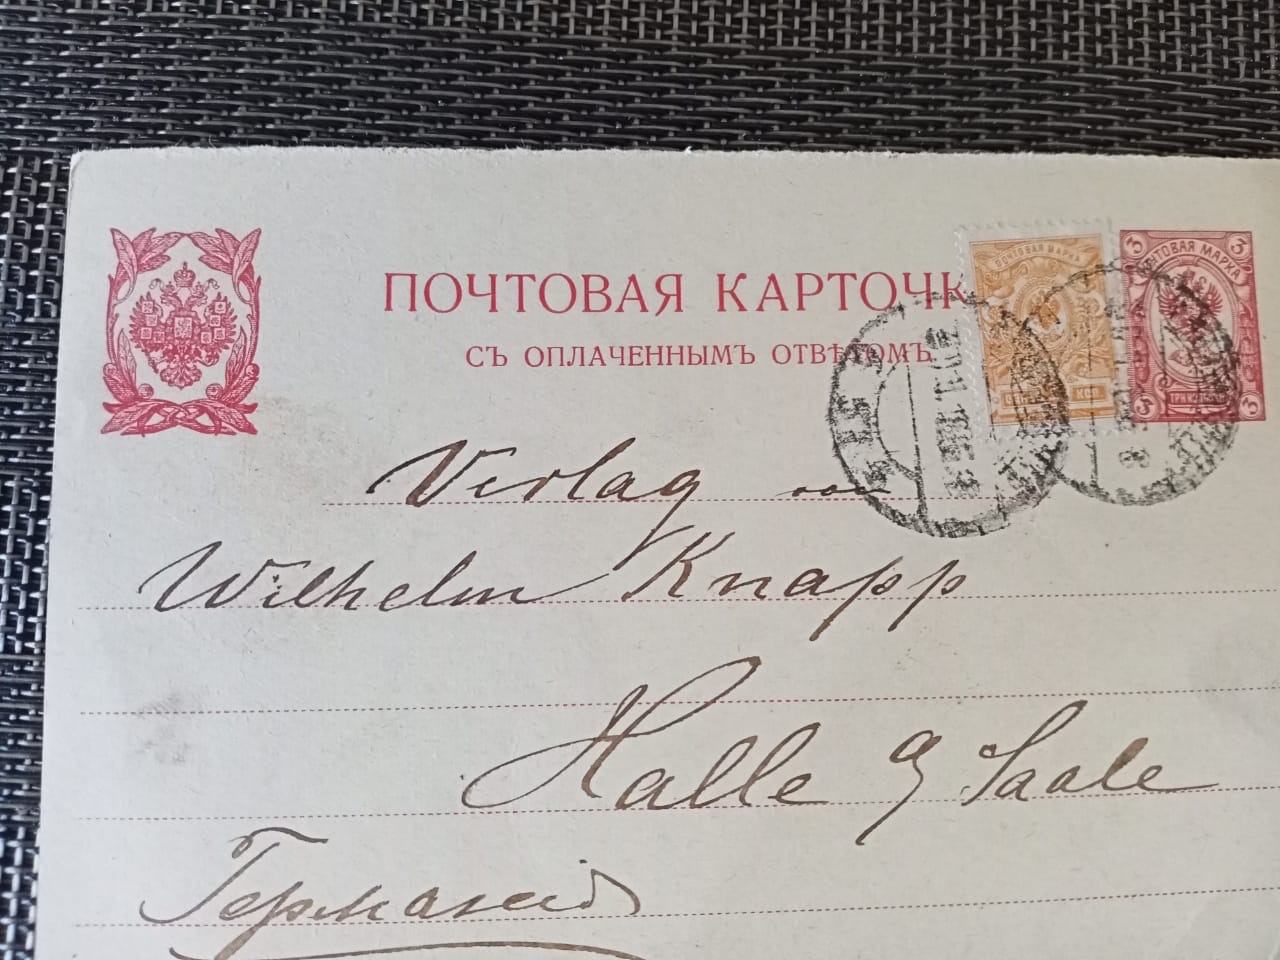 ПОЧТОВАЯ КАРТОЧК
СЪ ОПЛАЧЕННЫМЪ ОТВѢТОМЪ.
ПОЧТОВАЯ МАРКА
КОП.
3 ЧТОВАЯ МАРКА 3
3 ТРИ КОП 3
Verlag von
Wilhelm Knapp
Halle a/ Saale
Германія